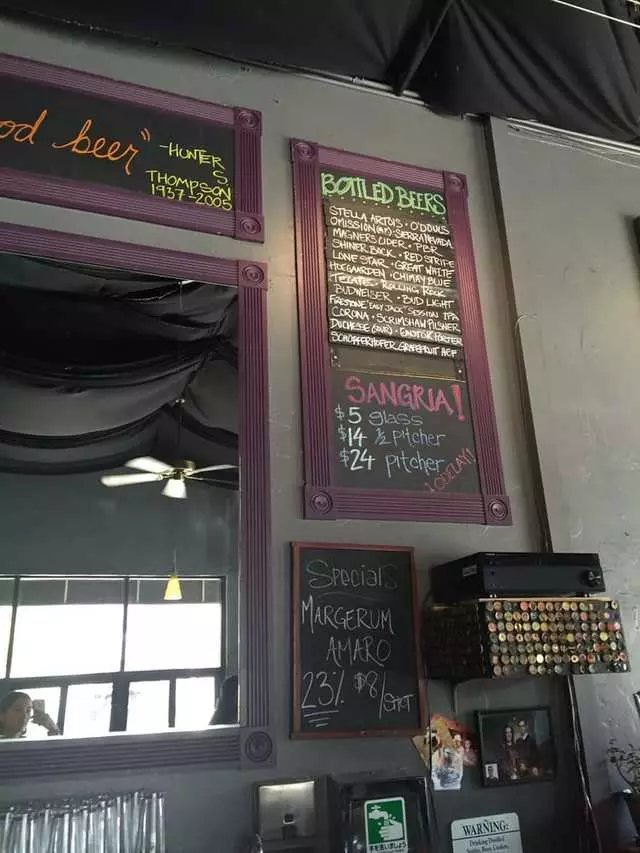 od beer"
-HUNTER
S.
THOMPSON
1937-2005
BOTTLED BEERS
STELLA ARTOIS • O'DOULS
OMISSION (GF) • SIERRA NEVADA
MAGNERS CIDER • PBR
SHINER BOCK • RED STRIPE
LONE STAR • GREAT WHITE
HOEGAARDEN • CHIMAY BLUE
TECATE • ROLLING ROCK
BUDWEISER • BUD LIGHT
FIRESTONE EASY JACK SESSION IPA
CORONA • SCRIMSHAW PILSNER
DUCHESSE (SOUR) • PORTER
SCHOFFERHOFER GRAPEFRUIT HEF
SANGRIA!
$5 glass
$14 ½ pitcher
$24 pitcher
¡ODELAY!
Specials
MARGERUM
AMARO
23% $8/SHOT
WARNING:
Drinking Distilled
Spirits, Beer, Coolers,